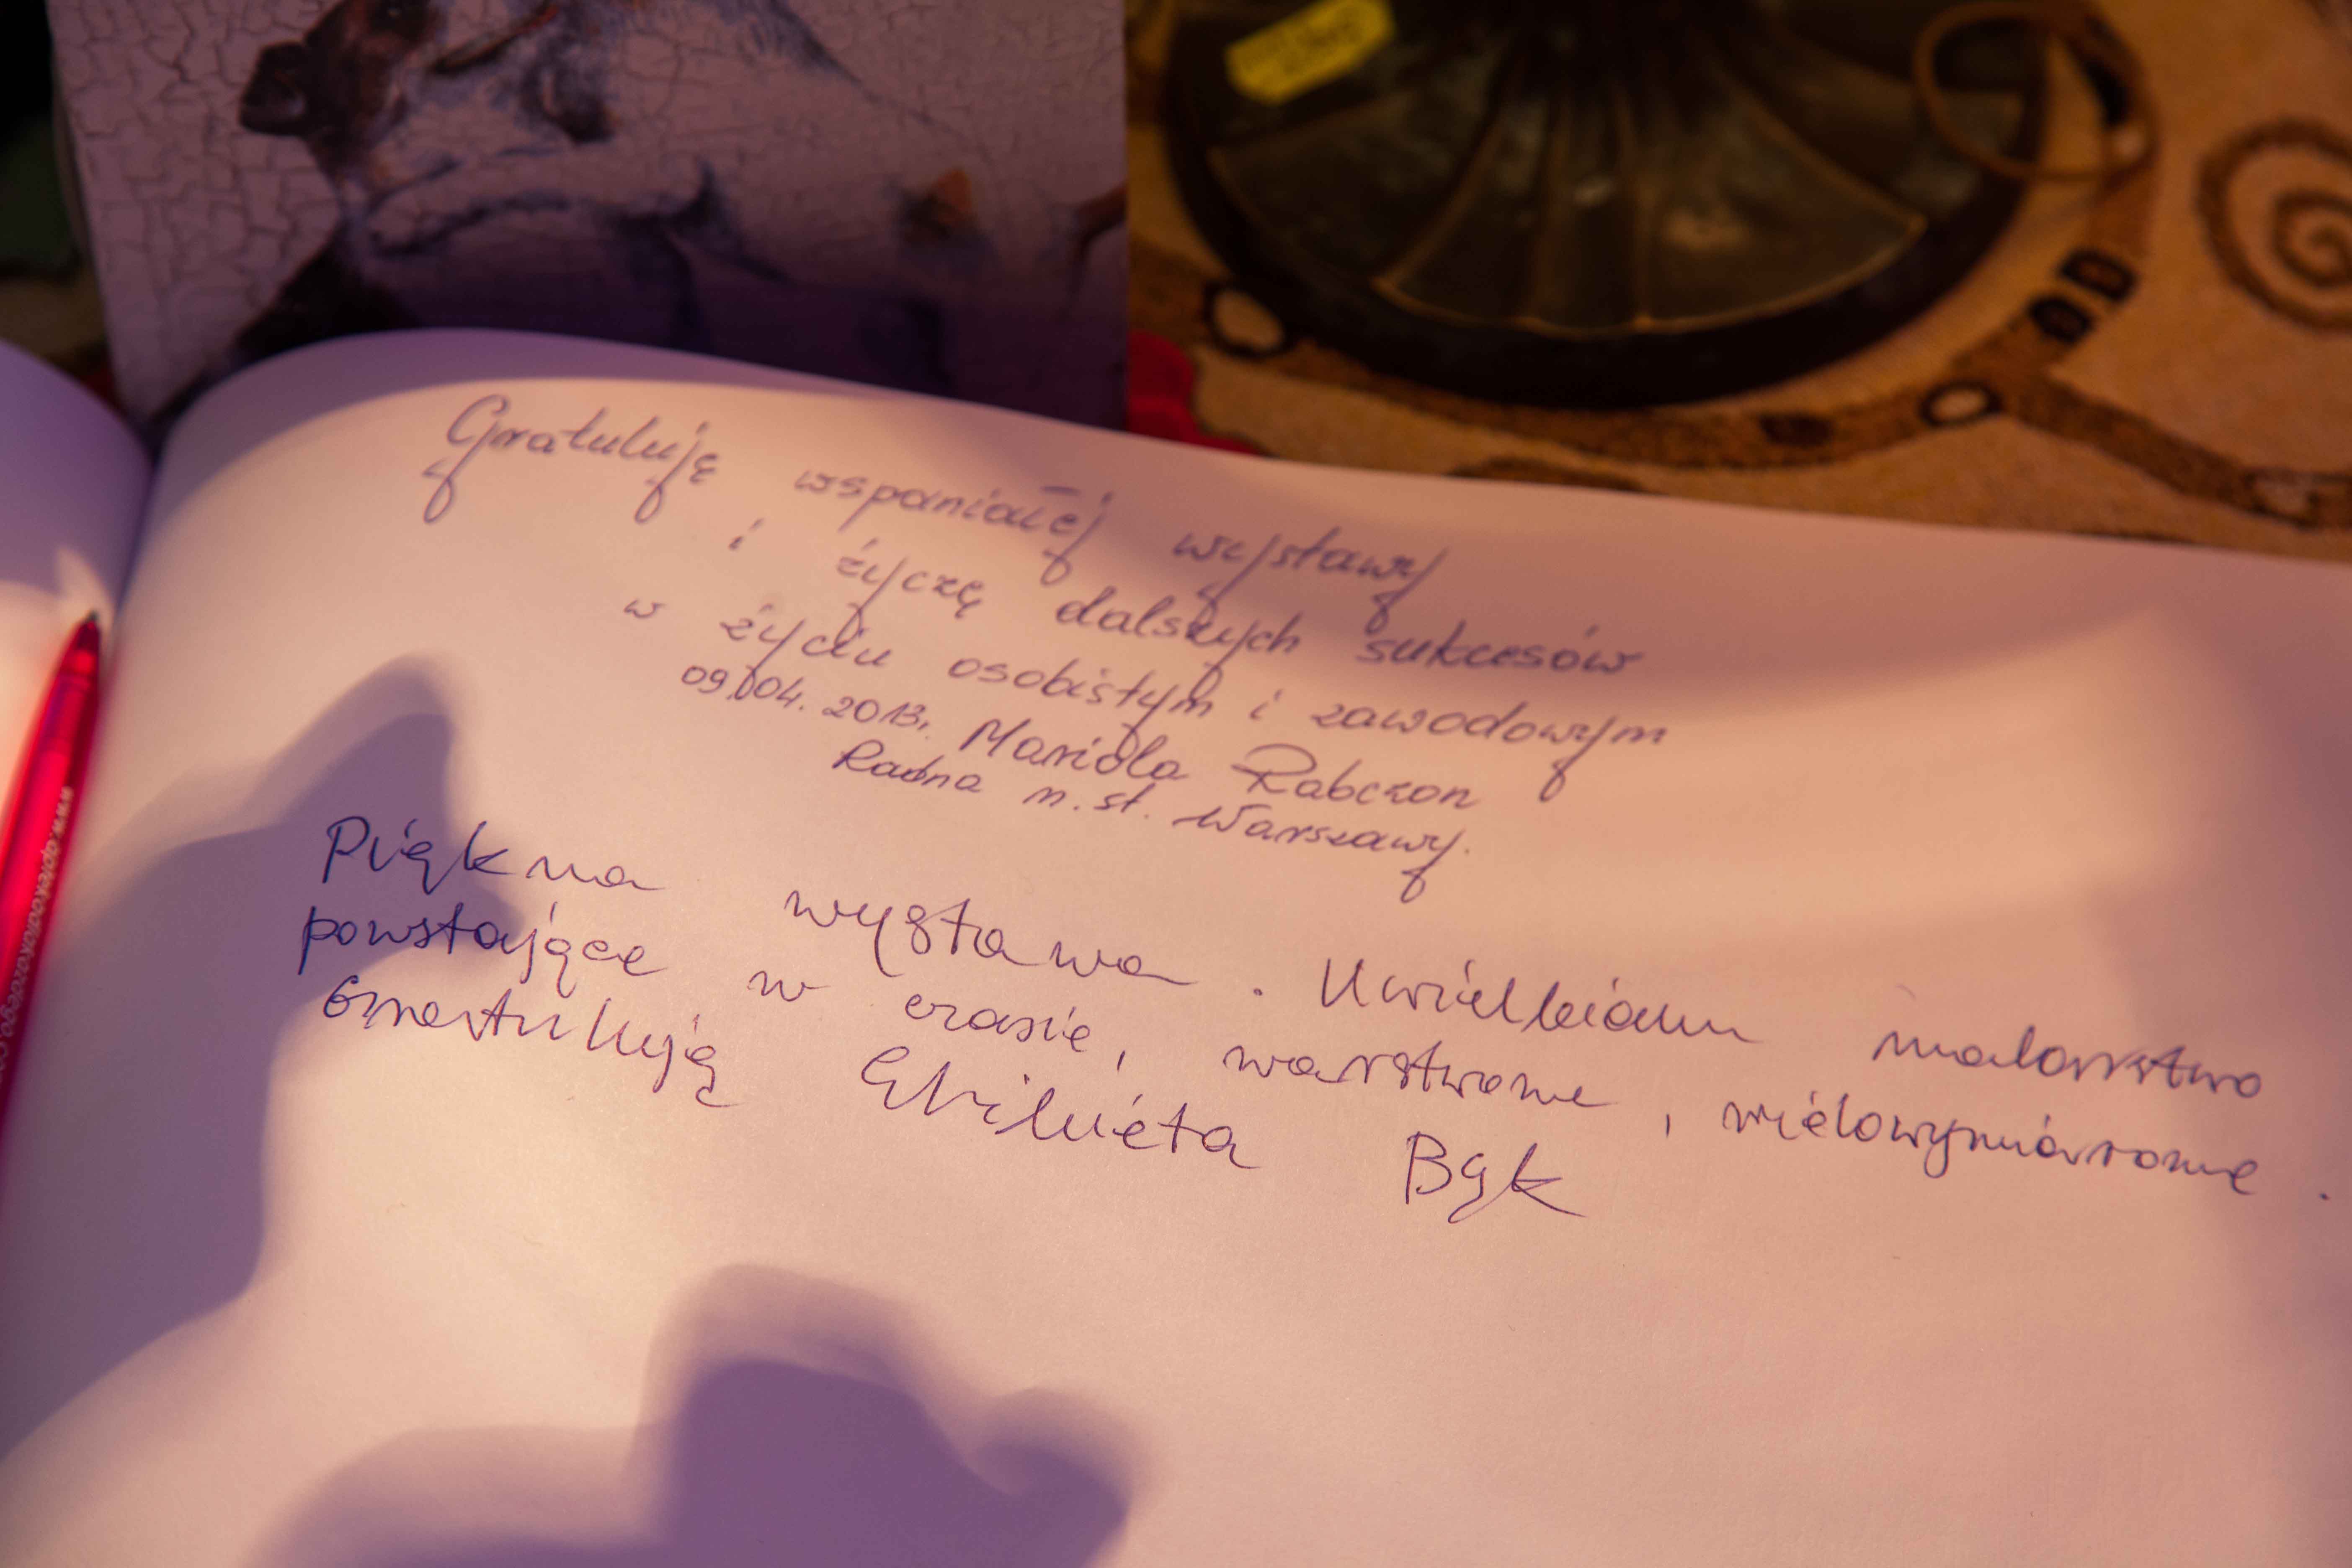 Gratuluję wspaniałej wystawy
i życzę dalszych sukcesów
w życiu osobistym i zawodowym
09.04.2013r. Mariola Rabczon
Radna m. st. Warszawy.
Piękna wystawa. Uwielbiam malarstwo
powstające w czasie, warstwowe, wielowymiarowe.
Gratuluję Elżbieta Bąk